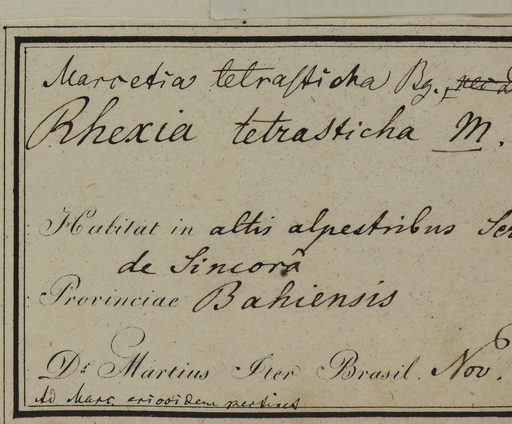 Marcetia tetrasticha Bg.,
Rhexia tetrasticha M.
Habitat in altis alpestribus Ser
de Sincorâ
Provinciae Bahiensis
Dr. Martius Iter Brasil. Nov.
Ad Marc. ericoidem pertinet